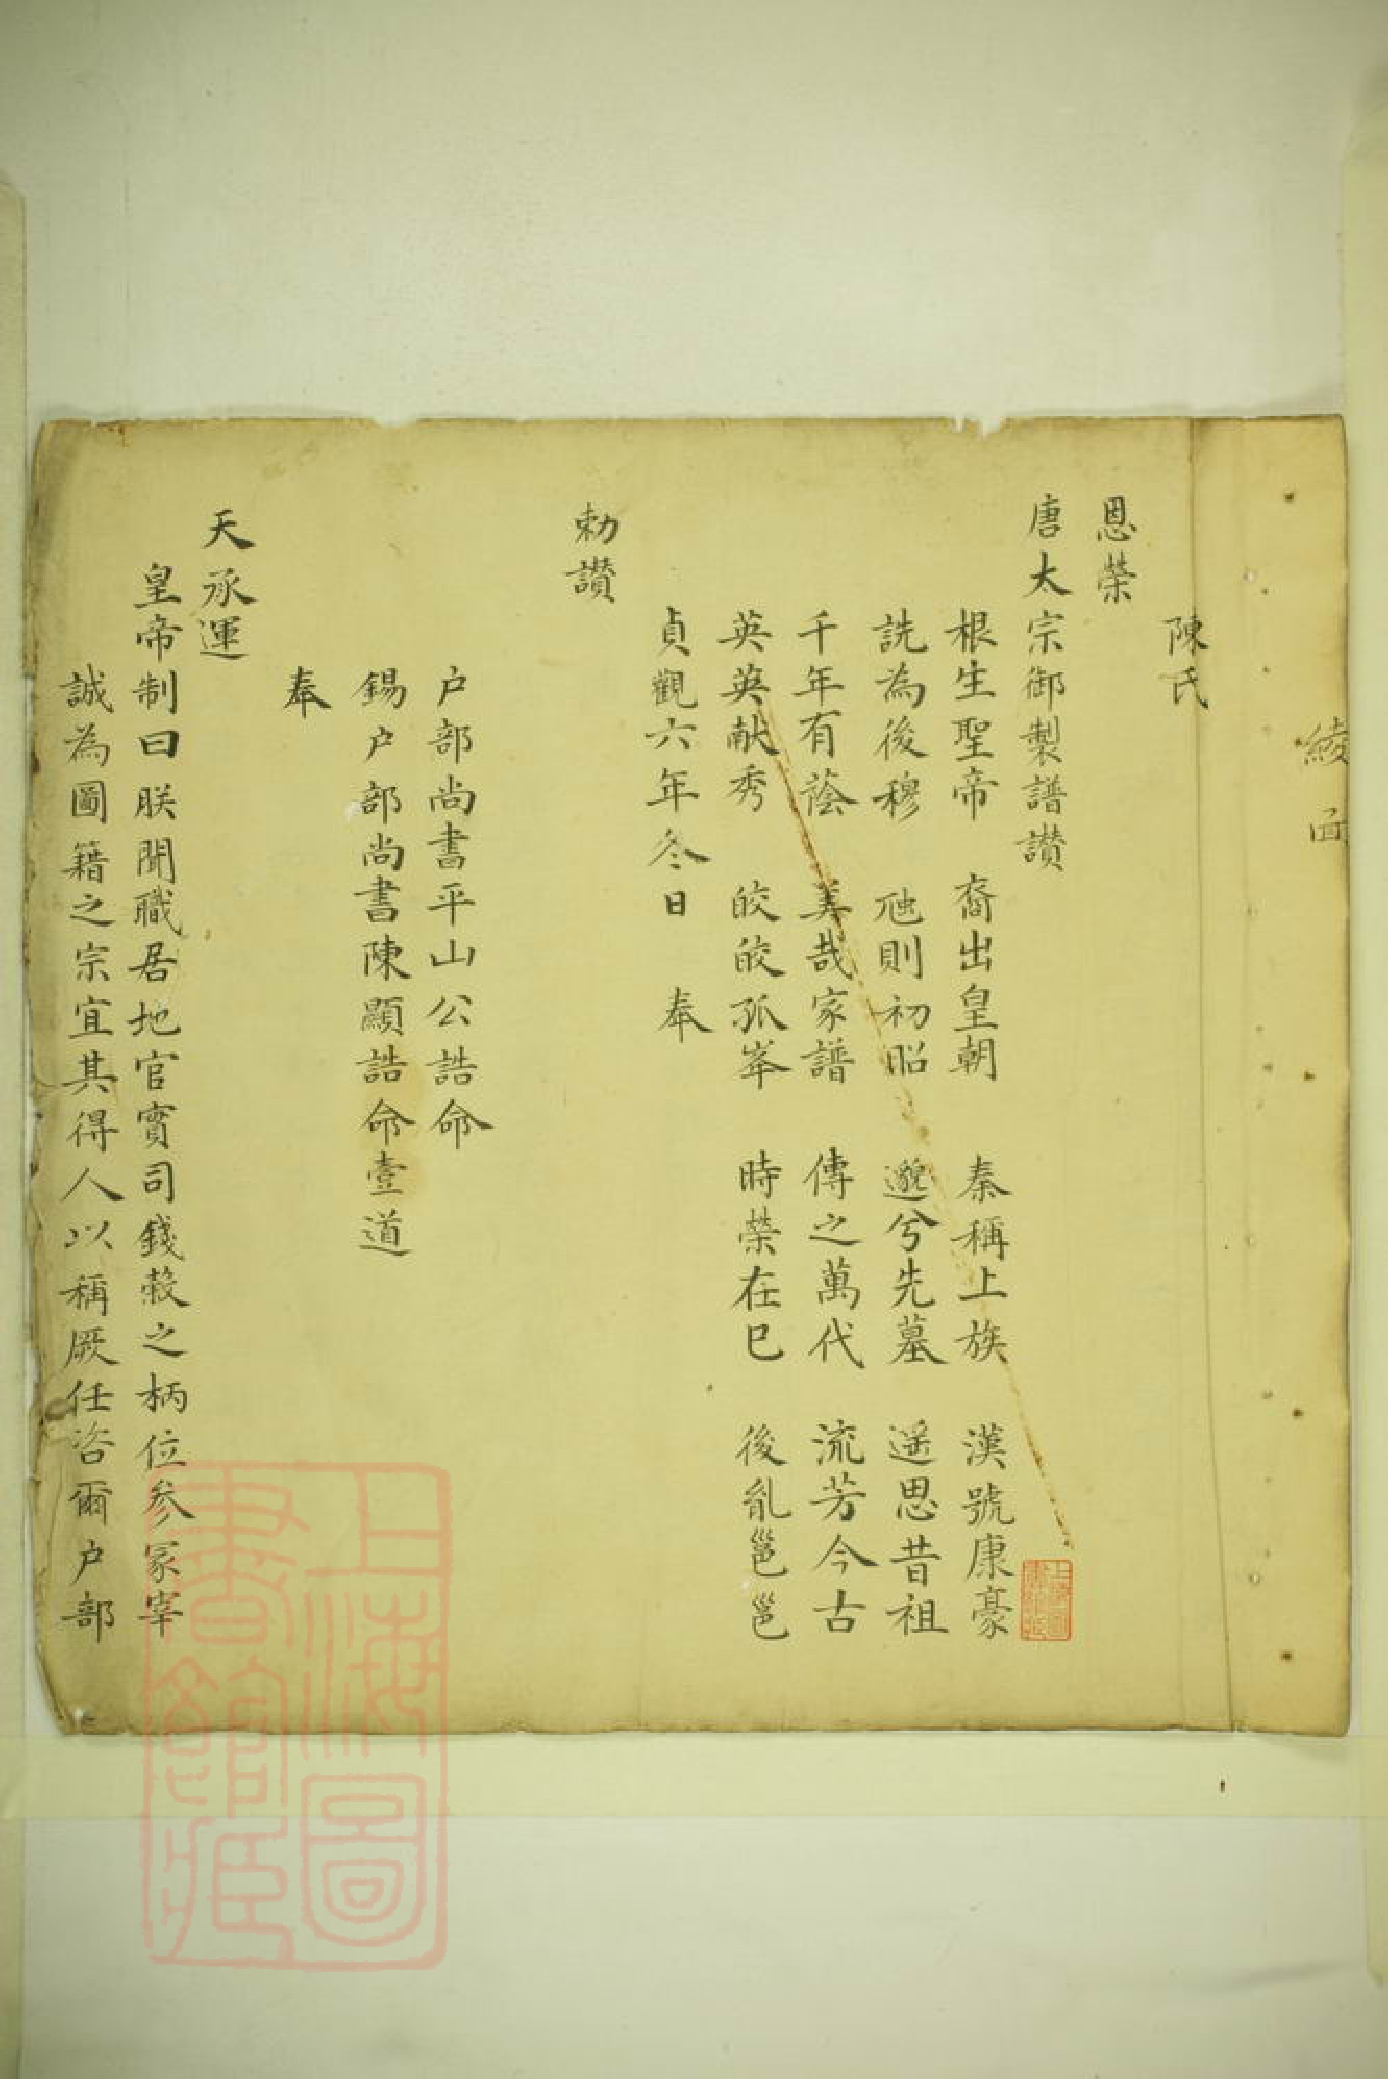 綾面
陳氏
恩榮
唐太宗御製譜讃
根生聖帝 裔出皇朝 秦稱上族 漢號康豪
詵為後穆 虺則初昭 邈兮先墓 遥思昔祖
千年有蔭 美哉家譜 傳之萬代 流芳今古
英英献秀 皎皎孤峯 時榮在巳 後胤邕邕
貞觀六年冬日 奉
勅讃
户部尚書平山公誥命
錫户部尚書陳顯誥命壹道
奉
天承運
皇帝制曰朕聞職居地官實司錢穀之柄位参冢宰
誠為圖籍之宗宜其得人以稱厥任咨爾户部
上海圖書館藏